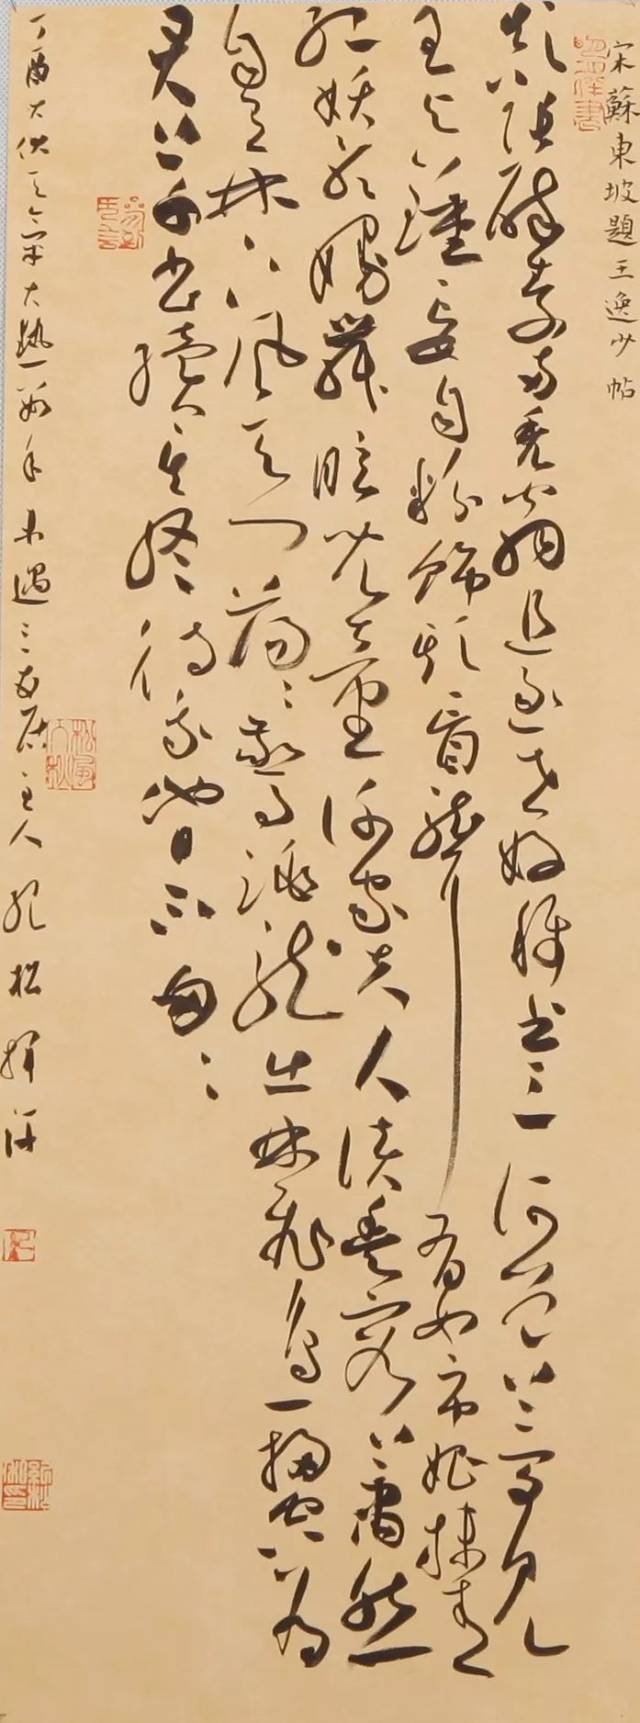 宋蘇東坡題王逸少帖
顛張醉素兩禿翁追逐世好稱書工何曾夢見
王与鍾妄自粉飾欺盲聾有如市娼抹青
紅妖歌嫚舞眩兒童謝家夫人淡丰容蕭然
自有林下風天門蕩々驚跳龍出林飛鳥一掃空為
君草書續其終待我他日不匆々
丁酉大伏天大熱數年未遇三友居主人松揮汗